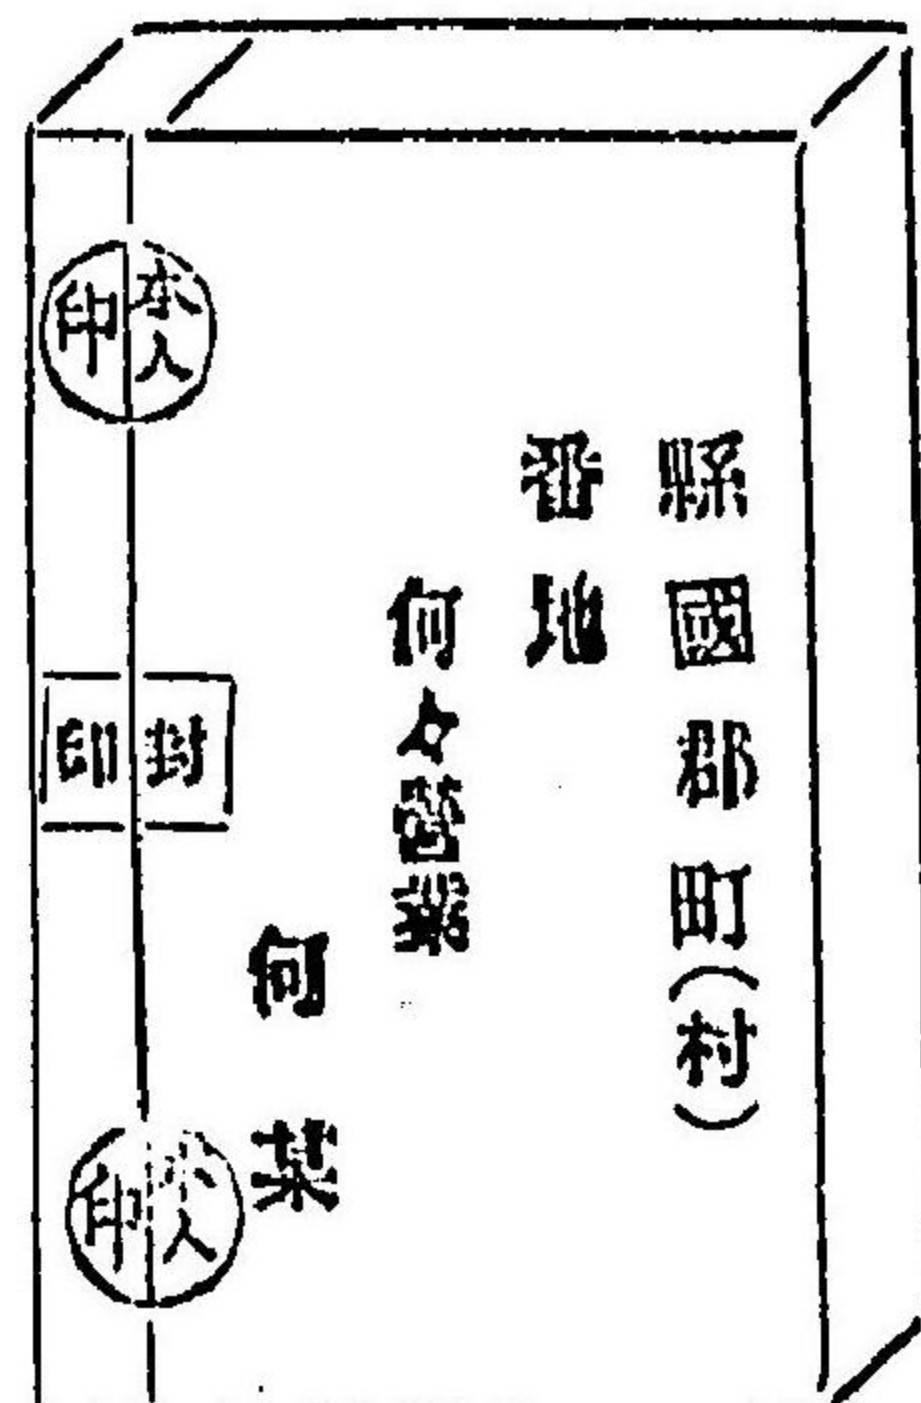 縣國郡町(村)
番地
何々營業
何某
本人印
封印
本人印